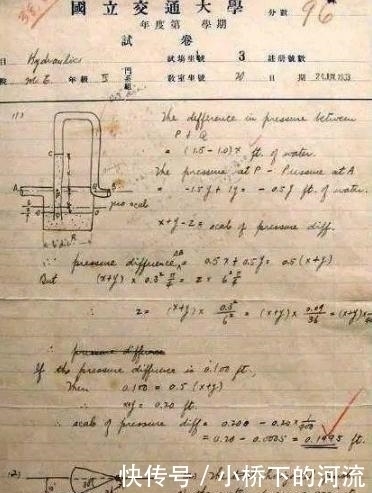 國立交通大學
年度第 學期
試卷
分數 96
日 Hydraulics 試場坐號 3 註冊號數
院 M.E. 年級 IV 教室坐號 20 日期
(1)
The difference in pressure between
P & Q
= (1.5-1.0)x ft. of water.
The pressure at P - Pressure at A
= -1.5y + 1y = -0.5y ft. of water.
zero scale
x+y-z = scale of pressure diff.
∴ pressure difference = 0.5x + 0.5y = 0.5(x+y)
But (x+y) × 0.3² π/4 = z × 6² π/4
∴ z = (x+y) × 0.3²/6² = (x+y) × 0.09/36 = (x+y)
∴ pressure difference
If the pressure difference is 0.100 ft.,
Then 0.100 = 0.5 (x+y)
x+y = 0.20 ft.
∴ scale of pressure diff = 0.200 - 0.20 × 1/400
= 0.20 - 0.0005 = 0.1995 ft.
(2)
快传号/小桥下的河流